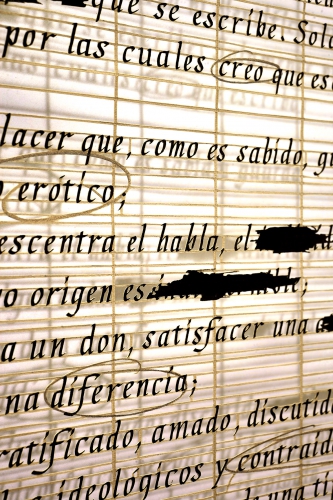 que se escribe. Solo
por las cuales creo que es
lacer que, como es sabido,
erótico;
escentra el habla, el
origen es
a un don, satisfacer una
na diferencia;
ratificado, amado, discutid
ideológicos y contraíd